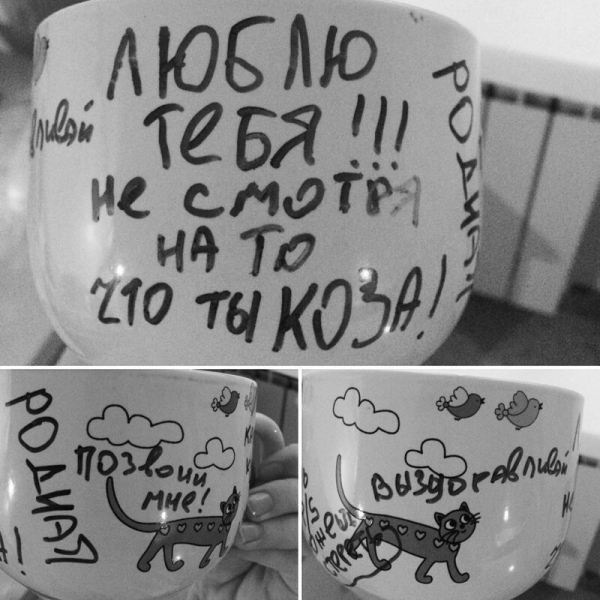 ЛЮБЛЮ
ТЕБЯ!!!
НЕ СМОТРЯ
НА ТО
ЧТО ТЫ КОЗА!
РОДНАЯ
РОДНАЯ
ПОЗВОНИ
МНЕ!
ВЫЗДОРАВЛИВАЙ